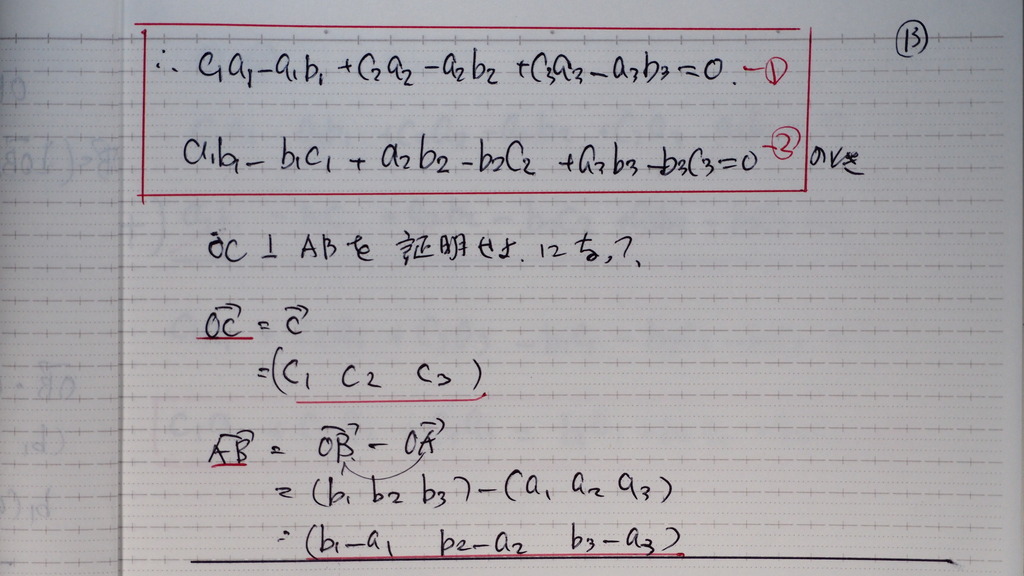 ⑬
∴ c₁a₁-a₁b₁+c₂a₂-a₂b₂+c₃a₃-a₃b₃=0. -①
a₁b₁-b₁c₁+a₂b₂-b₂c₂+a₃b₃-b₃c₃=0 -② のとき
OC⊥ABを証明せよ. になる?.
→OC = →c
=(c₁ c₂ c₃)
→AB = →OB - →OA
=(b₁ b₂ b₃)-(a₁ a₂ a₃)
=(b₁-a₁ b₂-a₂ b₃-a₃)